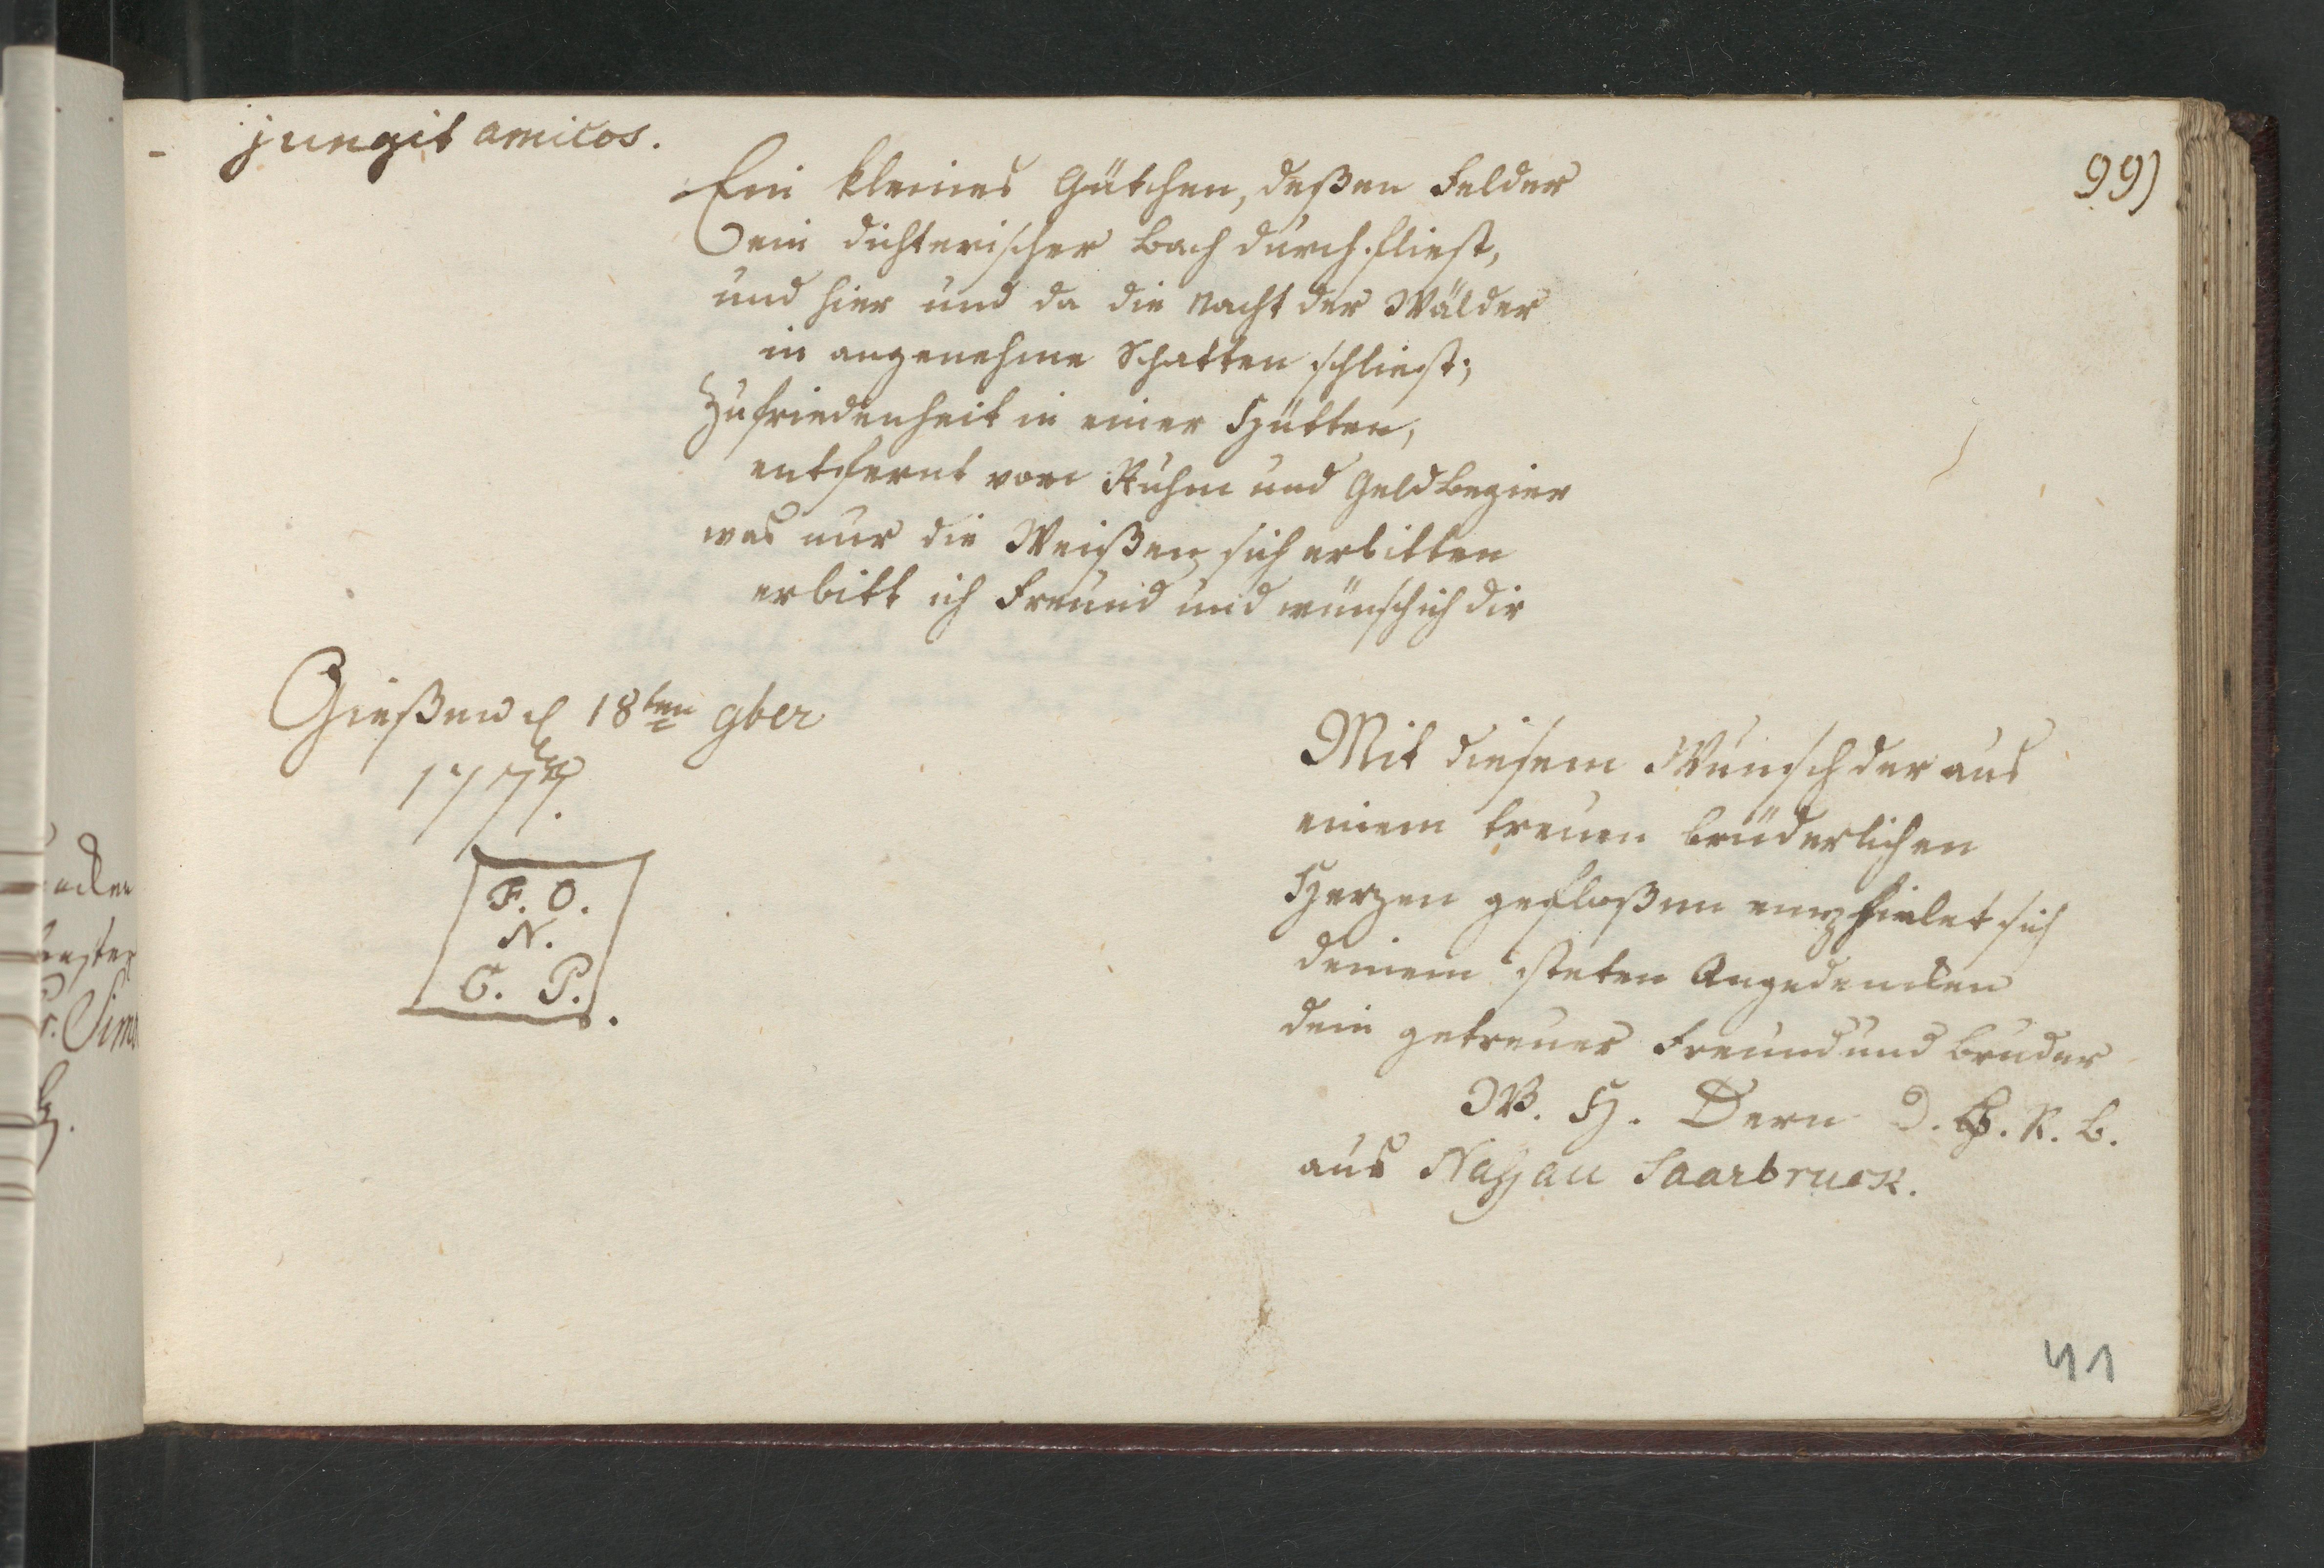 - jungit amicos.
99)
Ein kleines Gütchen, deßen Felder
ein dichterischer Bach durchfliest,
und hier und da die Nacht der Wälder
in angenehme Schatten schliest;
Zufriedenheit in einer Hütten,
entfernt von Ruhm und Geldbegier
was nur die Weißen sich erbitten
erbitt ich Freund und wünsch ich dir
Gießen d 18ten 9ber
177
F. O.
N.
C. P.
Mit diesem Wunsch der aus
einem treuen brüderlichen
Herzen gefloßen empfielet sich
deinem steten Angedencken
dein getreuer Freund und Bruder
W. H. Dern D. G. K. B.
aus Naßau Saarbruck.
41